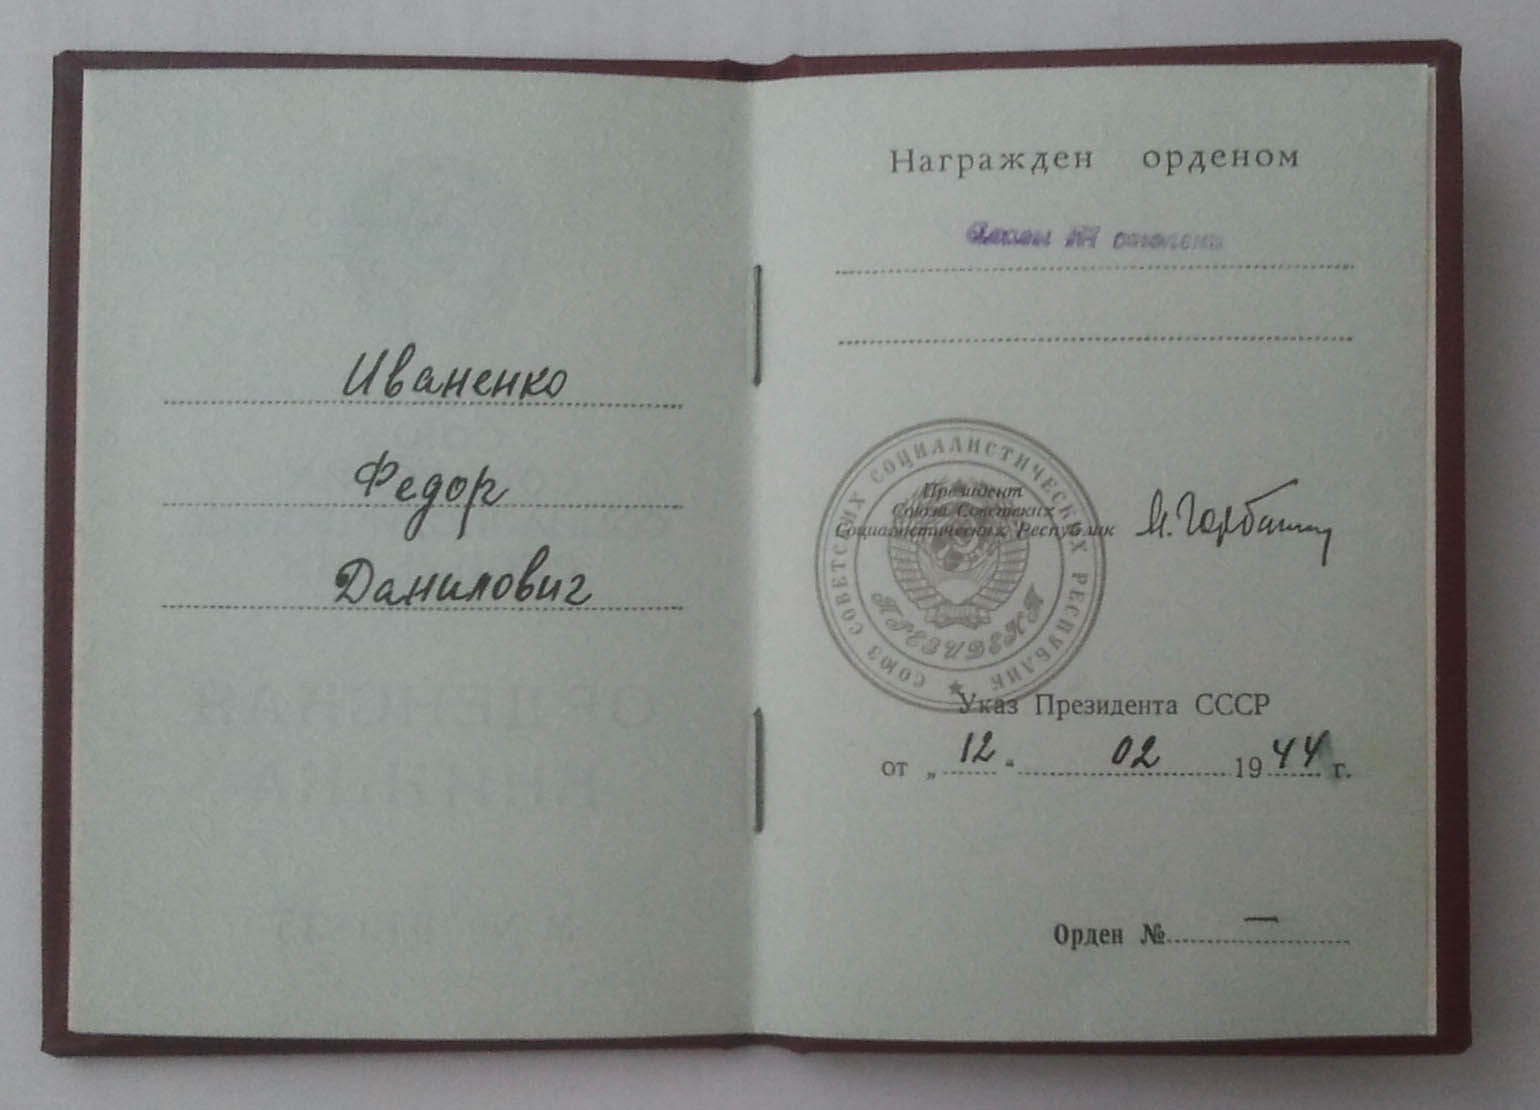 Иваненко
Федор
Данилович
Награжден орденом
Славы III степени
СОЮЗ СОВЕТСКИХ СОЦИАЛИСТИЧЕСКИХ РЕСПУБЛИК
Президент
Союза Советских
Социалистических Республик
М. Горбачев
ПРЕЗИДЕНТ
Указ Президента СССР
от „ 12 “ 02 1944 г.
Орден № —